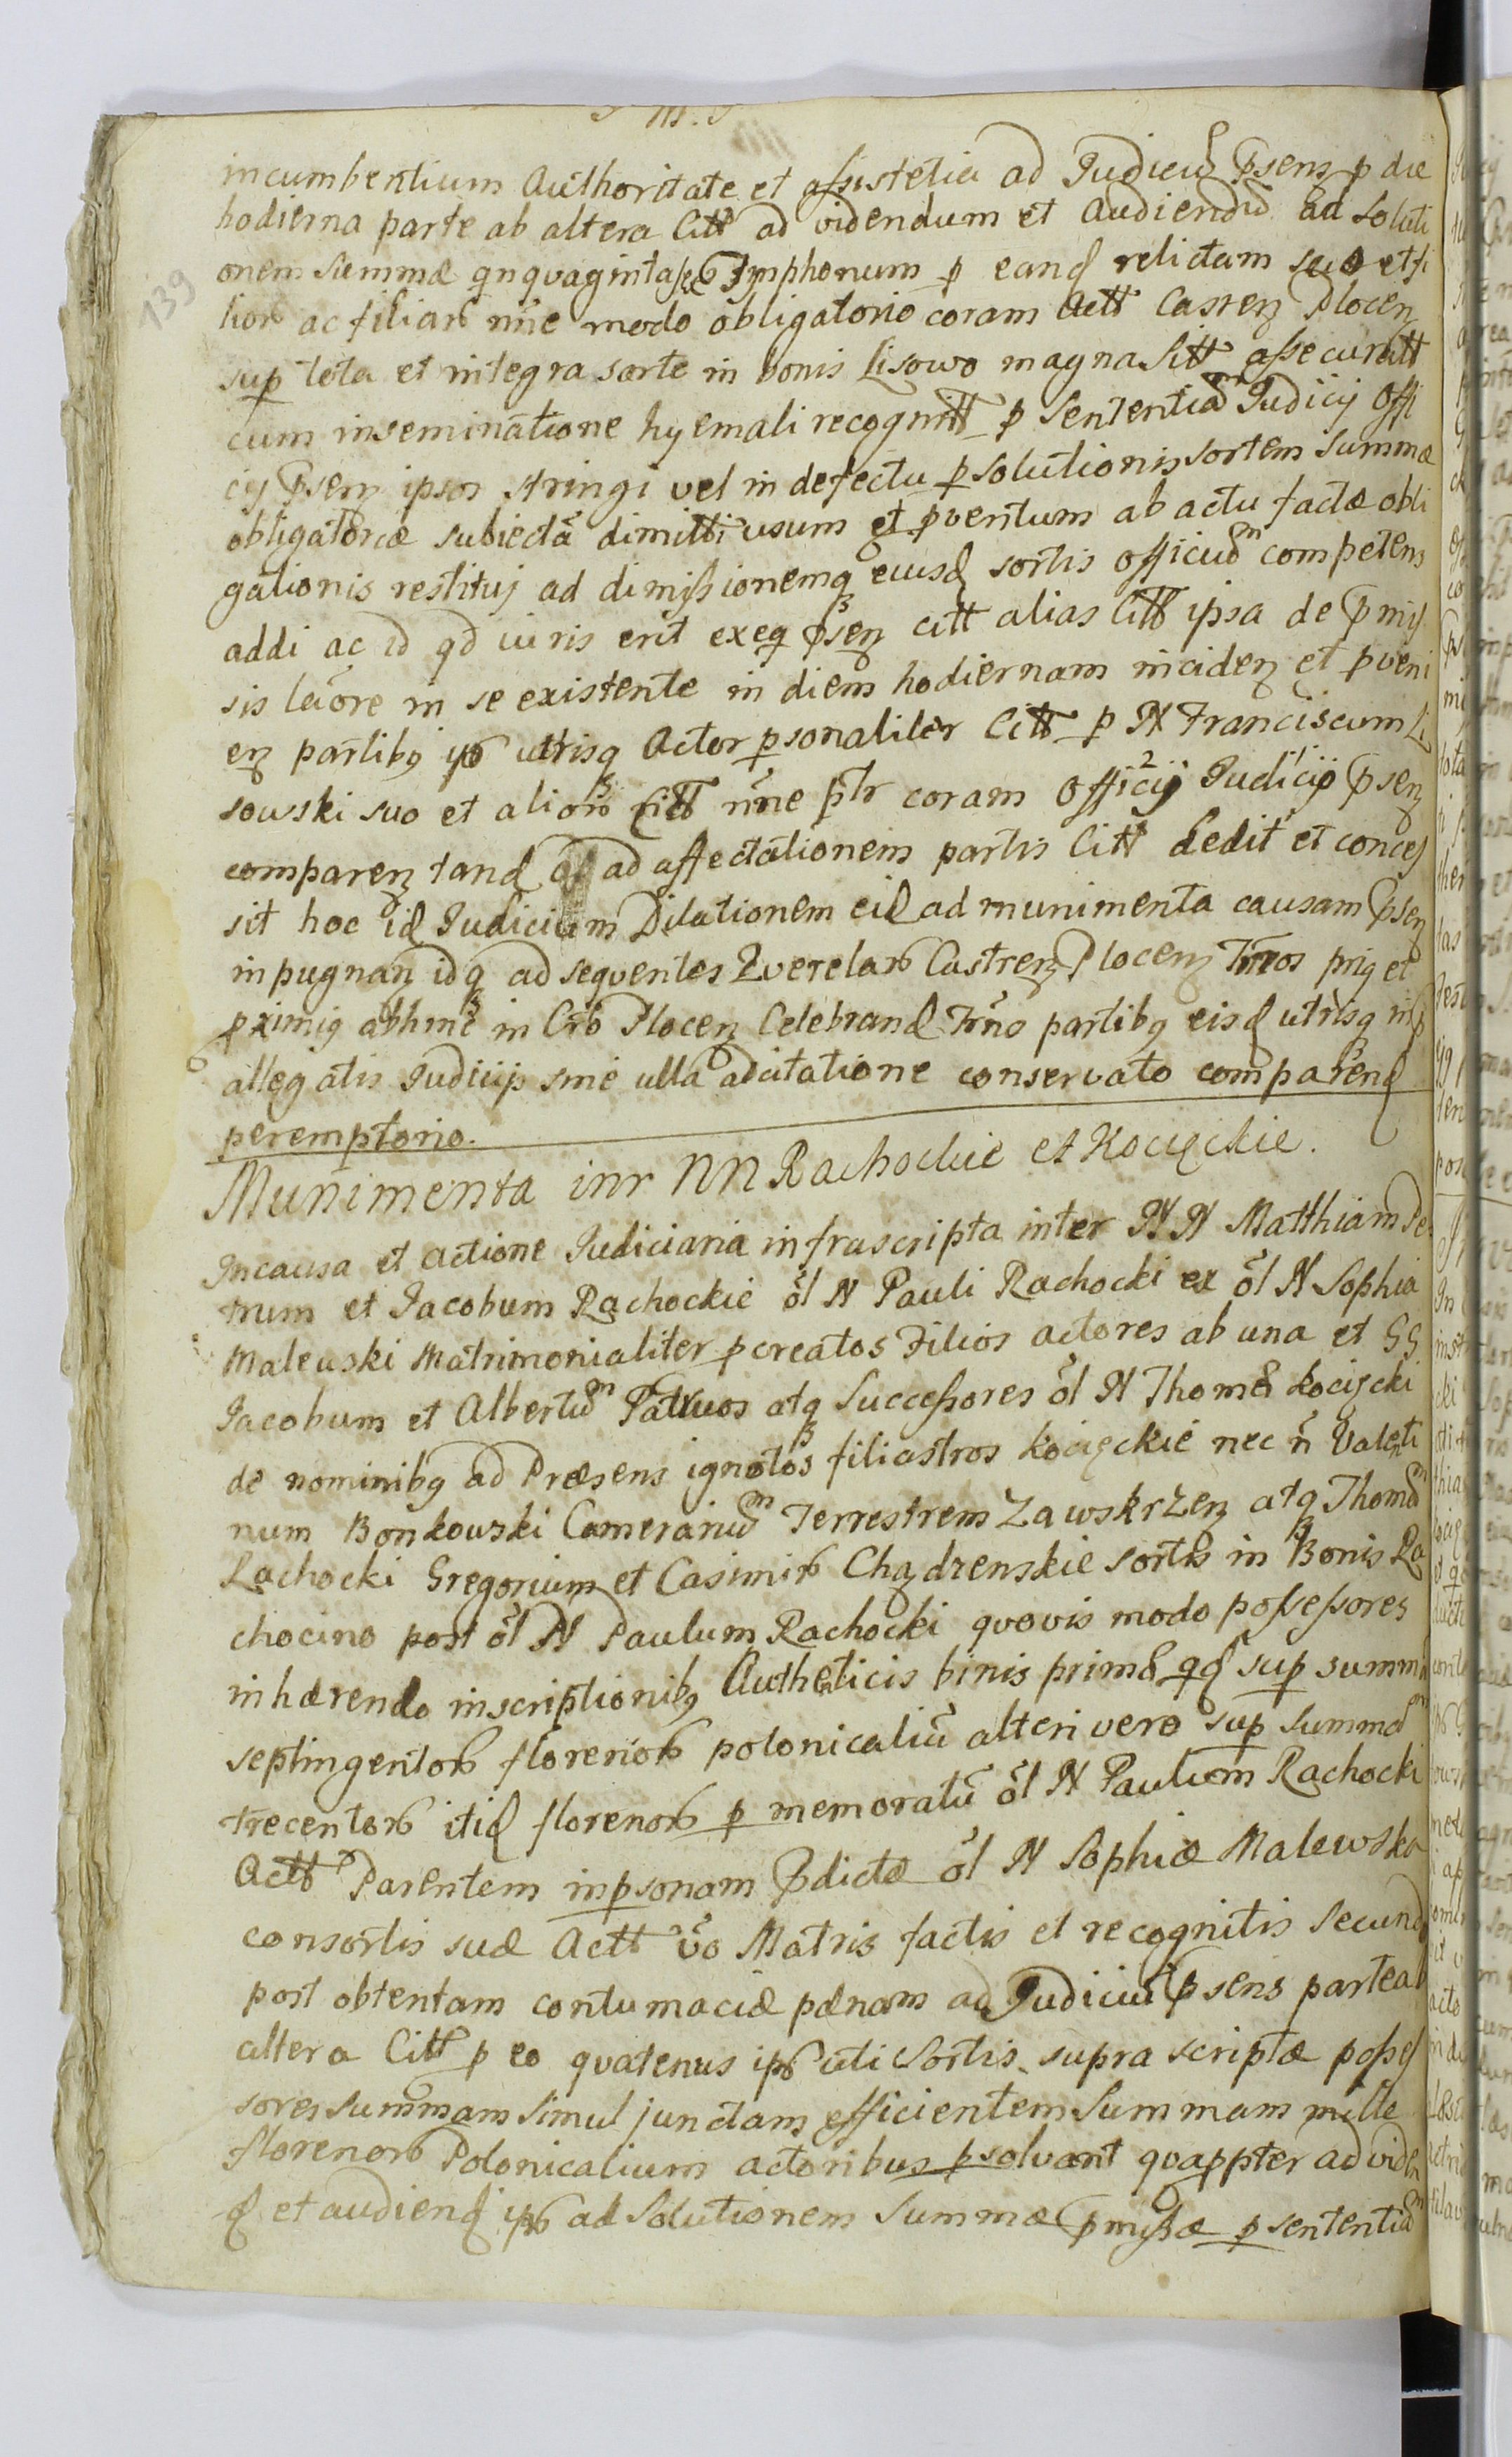 139
incumbentium Authoritate et assistetia ad Judiciu psens p die
hodierna parte ab altera Citt ad videndum et Audiendu ad soluti
onem summæ qnquaginta Tymphonum p eand relictam suo et fi
lior ac filiar nne modo obligatorio coram Actt Castren Plocen
sup tota et integra sorte in bonis Lisowo magna Sitt assecuratt
cum inseminatione hyemali recognitt p sententia Judicij Offi
cij psen ipsos stringi vel in defectu psolutionis sortem summæ
obligatoriæ subiecta dimitti usum et pventum ab actu factæ obli
gationis restituj ad dimissionemq eiusd sortis officium competens
addi ac id qd iuris erit exeq psen citt alias Citt ipsa de pmis
sis latiore in se existente in diem hodiernam inciden et pveni
en partibq utrisq Actor psonaliter Citt p N Franciscum Li
sowski suo et alior Citt nne ptr coram Officij Judicijs psen
comparen tand ad affectationem partis Citt dedit et conces
sit hoc id Judicium Dilationem eid ad munimenta causam psen
inpugnan idq ad sequentes Querelar Castren Plocen Tnos priq et
pximiq abhinc in Crb Plocen Celebrand Tno partibq eisd utrisq in
allegatis Judicijs sine ulla adcitatione conservato comparend
peremptorio.
Munimenta inr NN Rachockie et Kocięckie.
In causa et actione Judiciaria infrascripta inter N N Matthiam Pe
trum et Jacobum Rachockie ol N Pauli Rachocki ex ol N Sophia
Malewski Matrimonialiter pcreatos Filios actores ab una et GG
Jacobum et Albertum Patruos atq Successores ol N Thomæ Kocięcki
de nominibq ad Præsens ignotos filiastros Kocięckie nec n Valenti
num Bonkowski Camerarium Terrestrem Zawskrzen atq Thomam
Rachocki Gregorium et Casimir Chądzenskie sortis in Bonis Ra
chocino post ol N Paulum Rachocki quovis modo possessores
inhærendo inscriptionibq Authenticis binis primo qd sup summ
septingentor florenor polonicaliu alteri vero sup summam
trecentor itid florenor p memoratu ol N Paulum Rachocki
Actt Parentem inpsonam pdictæ ol N Sophiæ Malewska
consortis suæ Actt vo Matris factis et recognitis secund
post obtentam contumaciæ pænam ad Judiciu psens parte ab
altera Citt p eo quatenus ips uti sortis supra scriptæ posses
sores summam simul junctam efficientem summam mille
florenor Polonicalium actoribus psolvant quappter ad viden
d et audiend ips ad solutionem summæ pmissæ p sententiam